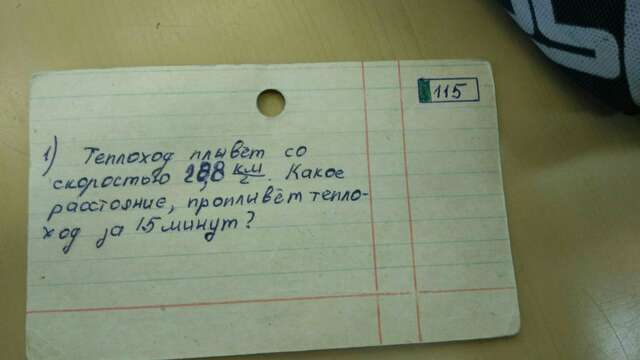 115
1) Теплоход плывёт со
скоростью км/ч. Какое
расстояние, пропливёт тепло-
ход за 15 минут?